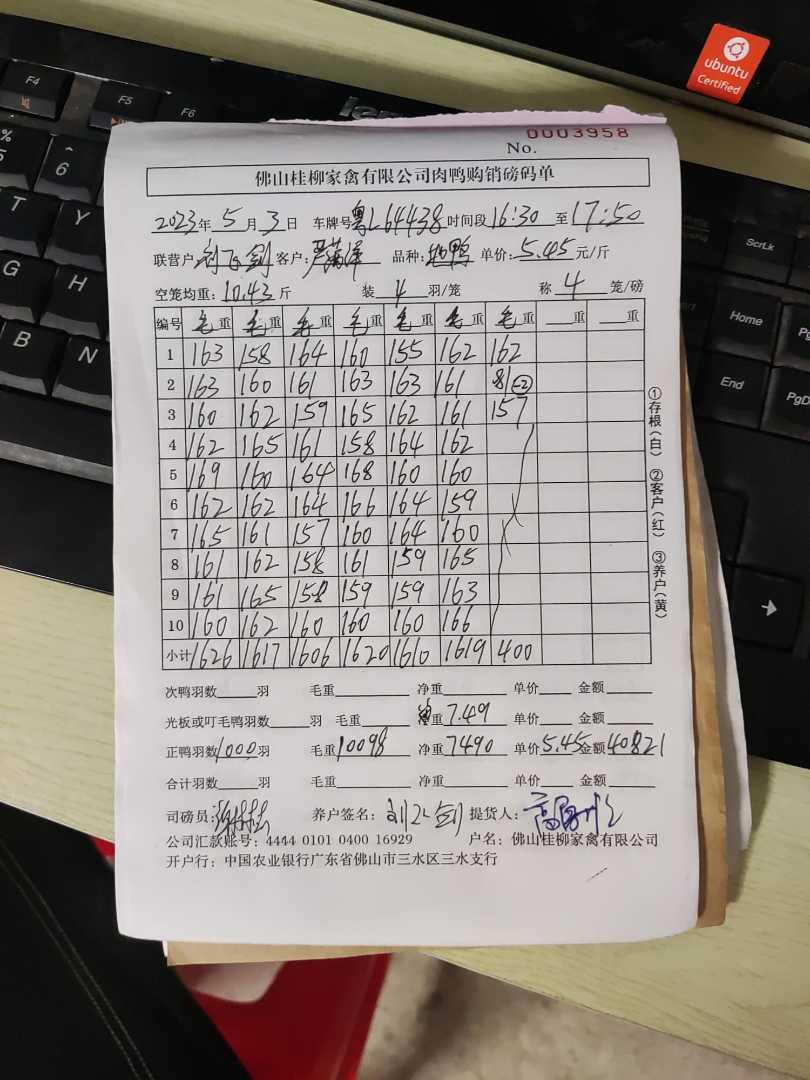 ubuntu
Certified
F4
F5
F6
%
5
6
T
Y
G
H
B
N
ScrLk
Home
End
PgD
0003958
No.
佛山桂柳家禽有限公司肉鸭购销磅码单
2023年5月3日 车牌号粤L64438时间段16:30至17:50
联营户 客户: 品种: 鸭 单价:5.45元/斤
空笼均重:10.43斤 装4羽/笼 称4笼/磅
编号 毛重 毛重 毛重 毛重 毛重 毛重 毛重 重 重
1 163 158 164 160 155 162 162
2 163 160 161 163 163 161 81(-2)
3 160 162 159 165 162 161 157
4 162 165 161 158 164 162
5 169 160 164 168 160 160
6 162 162 164 166 164 159
7 165 161 157 160 164 160
8 161 162 158 161 159 165
9 161 165 158 159 159 163
10 160 162 160 160 160 166
小计 1626 1617 1606 1620 1610 1619 400
次鸭羽数 羽 毛重 净重 单价 金额
光板或叮毛鸭羽数 羽 毛重 重7.49 单价 金额
正鸭羽数1000羽 毛重10098 净重7490 单价5.45金额40821
合计羽数 羽 毛重 净重 单价 金额
司磅员: 养户签名: 提货人:
公司汇款账号: 4444 0101 0400 16929 户名: 佛山桂柳家禽有限公司
开户行: 中国农业银行广东省佛山市三水区三水支行
①存根(白) ②客户(红) ③养户(黄)